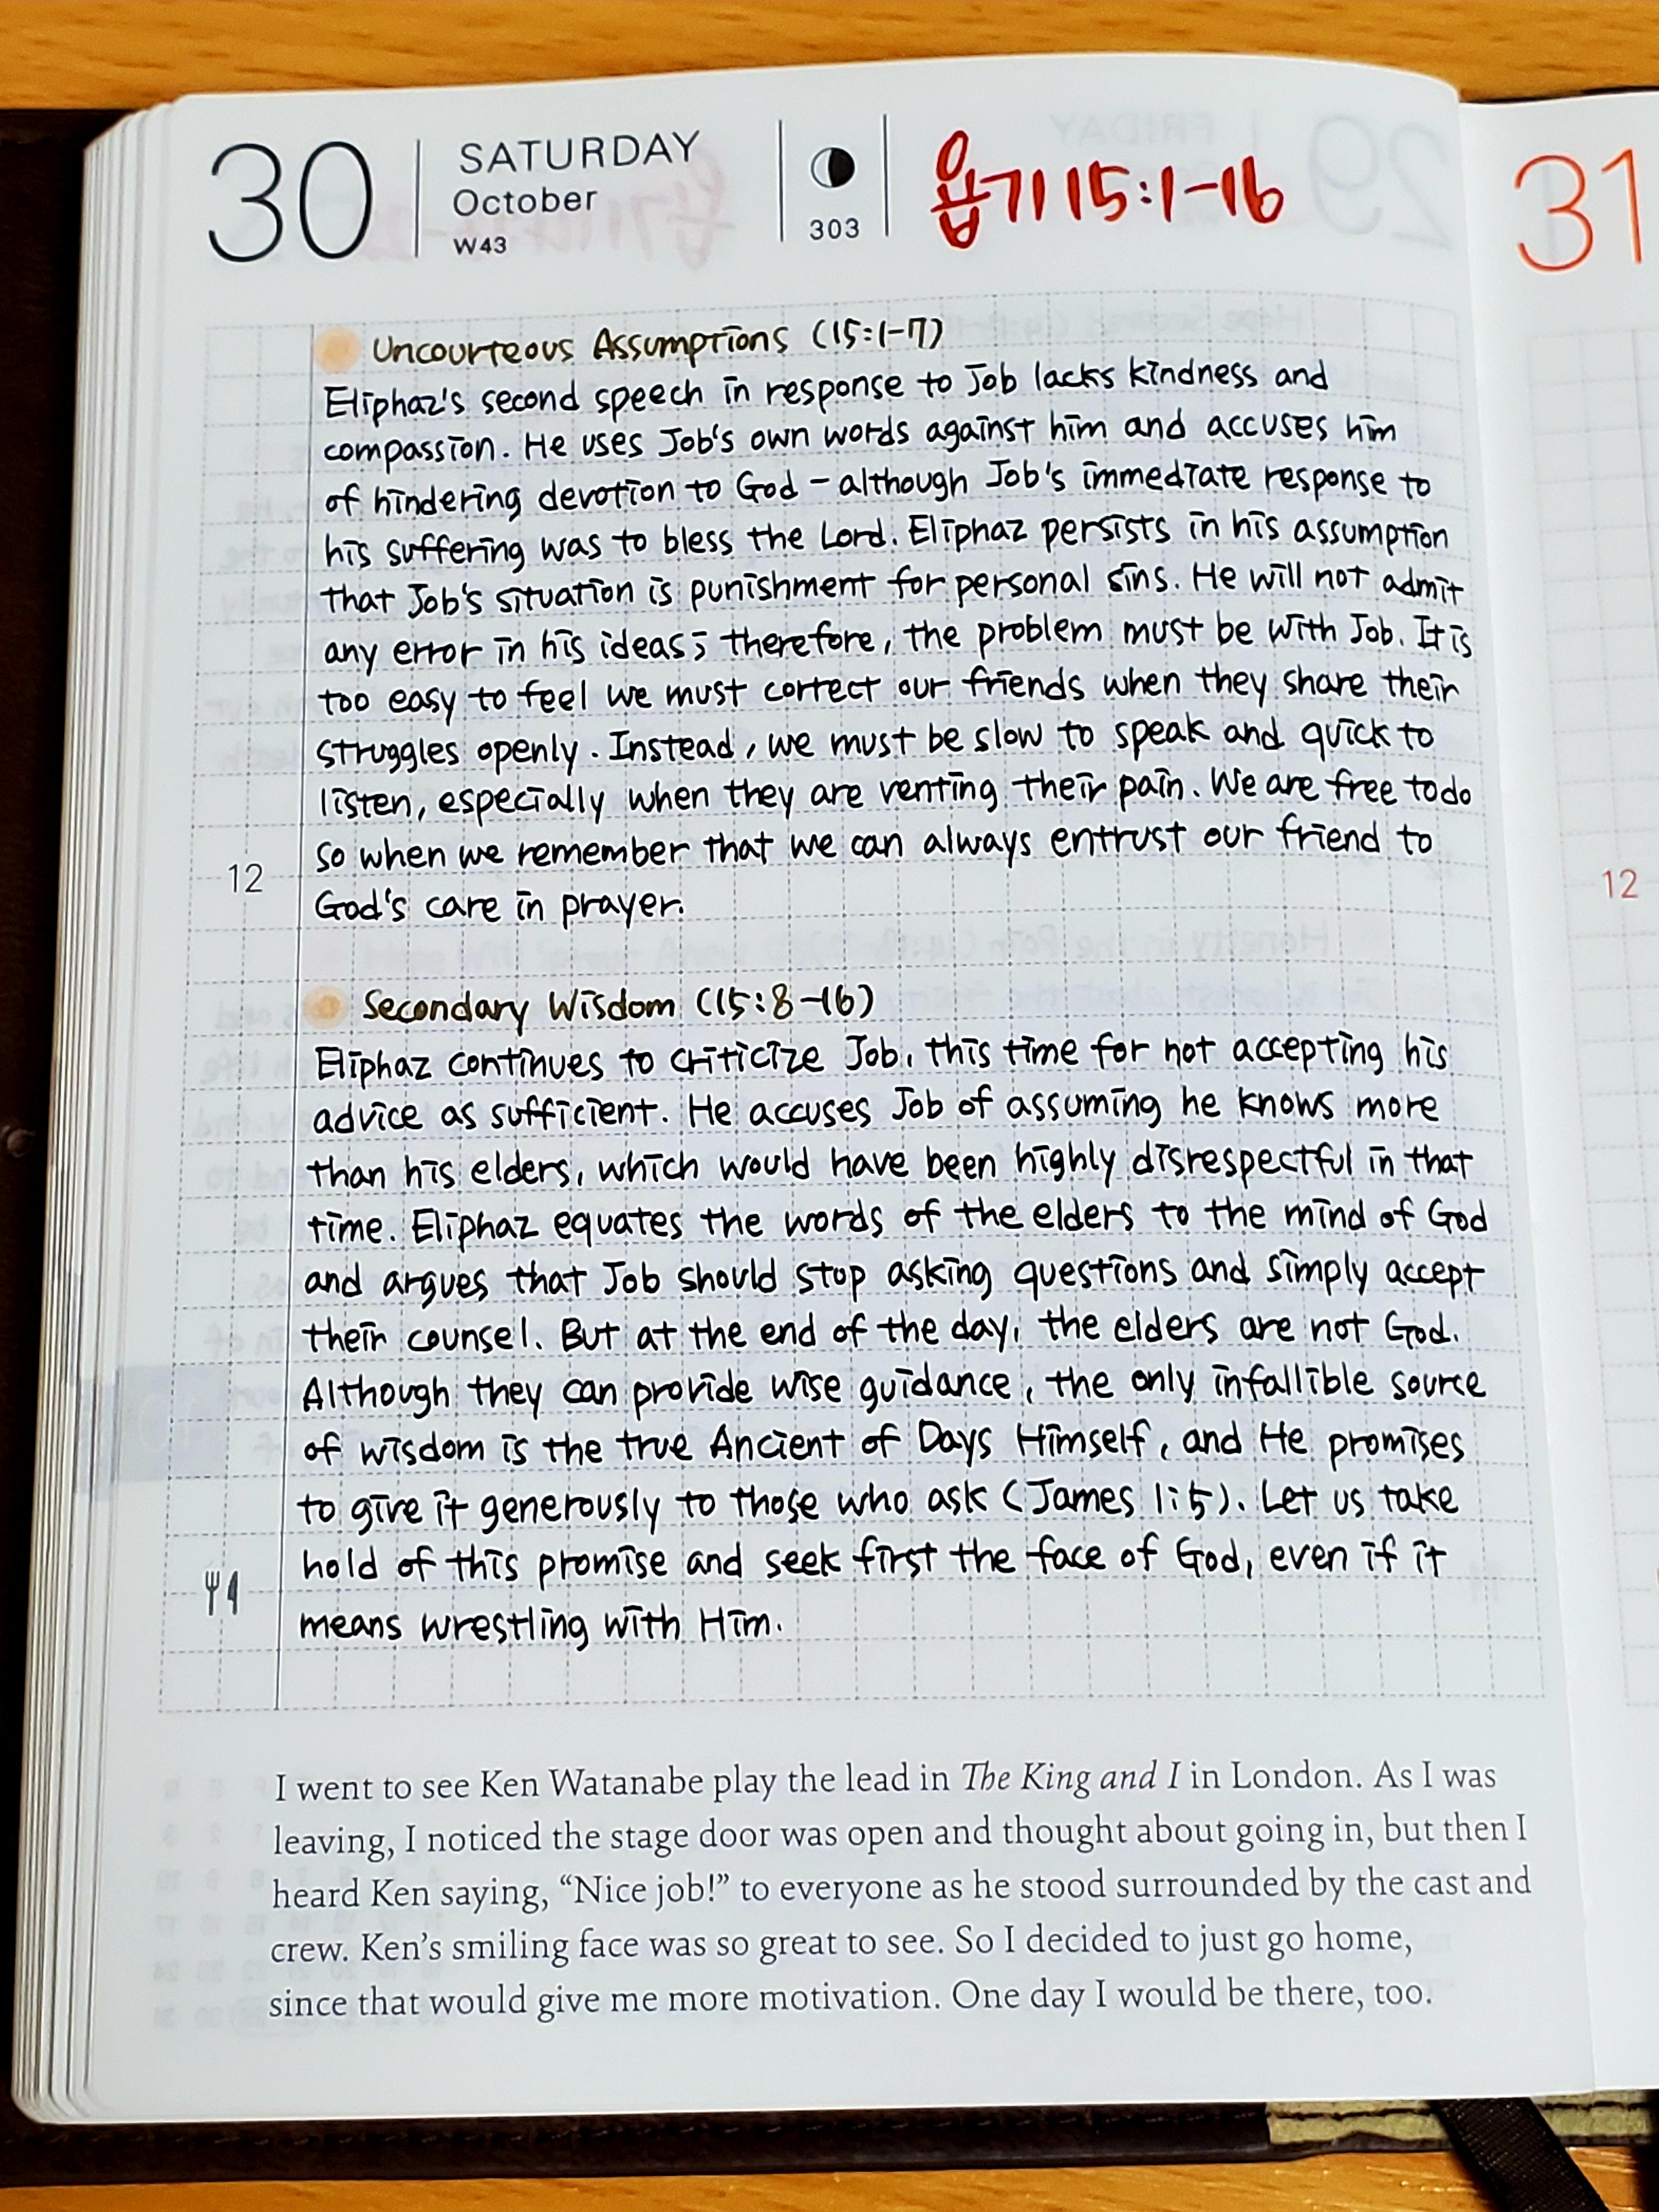 30
SATURDAY
October
W43
303
욥기 15:1-16
31
Uncourteous Assumptions (15:1-7)
Eliphaz's second speech in response to Job lacks kindness and
compassion. He uses Job's own words against him and accuses him
of hindering devotion to God - although Job's immediate response to
his suffering was to bless the Lord. Eliphaz persists in his assumption
that Job's situation is punishment for personal sins. He will not admit
any error in his ideas; therefore, the problem must be with Job. It is
too easy to feel we must correct our friends when they share their
struggles openly. Instead, we must be slow to speak and quick to
listen, especially when they are venting their pain. We are free to do
so when we remember that we can always entrust our friend to
12
God's care in prayer.
12
Secondary Wisdom (15:8-16)
Eliphaz continues to criticize Job, this time for not accepting his
advice as sufficient. He accuses Job of assuming he knows more
than his elders, which would have been highly disrespectful in that
time. Eliphaz equates the words of the elders to the mind of God
and argues that Job should stop asking questions and simply accept
their counsel. But at the end of the day, the elders are not God.
Although they can provide wise guidance, the only infallible source
of wisdom is the true Ancient of Days Himself, and He promises
to give it generously to those who ask (James 1:5). Let us take
hold of this promise and seek first the face of God, even if it
means wrestling with Him.
I went to see Ken Watanabe play the lead in The King and I in London. As I was
leaving, I noticed the stage door was open and thought about going in, but then I
heard Ken saying, “Nice job!” to everyone as he stood surrounded by the cast and
crew. Ken’s smiling face was so great to see. So I decided to just go home,
since that would give me more motivation. One day I would be there, too.